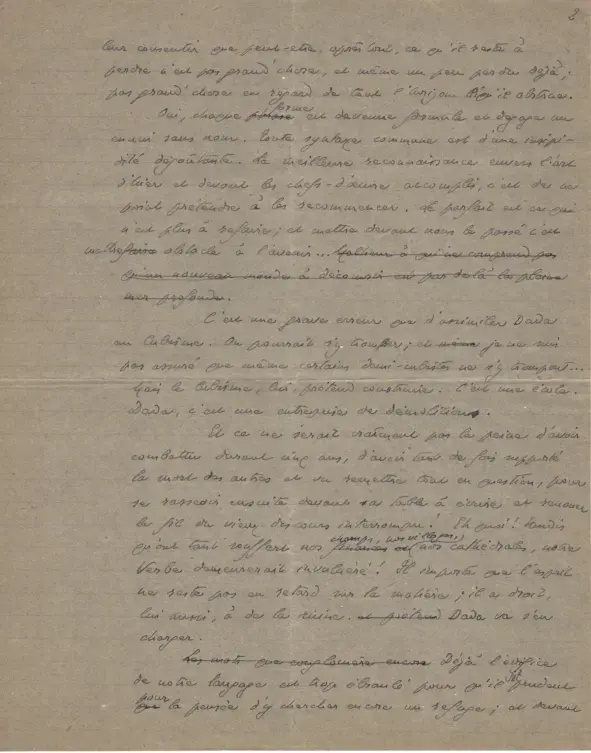 2
leur consentir que peut-être, après tout, ce qu'il reste à
perdre n'est pas grand'chose, et même un peu perdu déjà ;
pas grand'chose en regard de tout l'horizon qu'il obstrue.
forme
Oui, chaque est devenue formule et dégage un
ennui sans nom. Toute syntaxe commune est d'une insipi-
dité dégoûtante. La meilleure reconnaissance envers l'art
d'hier et devant les chefs-d'œuvre accomplis, c'est de ne
point prétendre à les recommencer. Le parfait est ce qui
n'est plus à refaire ; et mettre devant nous le passé c'est
obstacle à l'avenir... Malheur à qui ne comprend pas
qu'un nouveau monde à découvrir est par delà la plaine
mer profonde.
C'est une grave erreur que d'assimiler Dada
au Cubisme. On pourrait s'y tromper ; et je ne suis
pas assuré que même certains demi-cubistes ne s'y trompent...
Mais le Cubisme, lui, prétend construire. C'est une école.
Dada, c'est une entreprise de démolition.
Et ce ne serait vraiment pas la peine d'avoir
combattu durant cinq ans, d'avoir tant de fois supporté
la mort des autres et vu remettre tout en question, pour
se rasseoir ensuite devant sa table à écrire et renouer
le fil du vieux discours interrompu. Eh quoi ! tandis
champs, nos villages,
qu'ont tant souffert nos nos cathédrales, notre
Verbe demeurerait invulnéré ! Il importe que l'esprit
ne reste pas en retard sur la matière ; il a droit,
lui aussi, à de la ruine. et prétend Dada va s'en
charger.
Les mots que complomère encore Déjà l'édifice
de notre langage est trop ébranlé pour qu'il soit prudent
pour
la pensée d'y chercher encore un refuge ; et devant